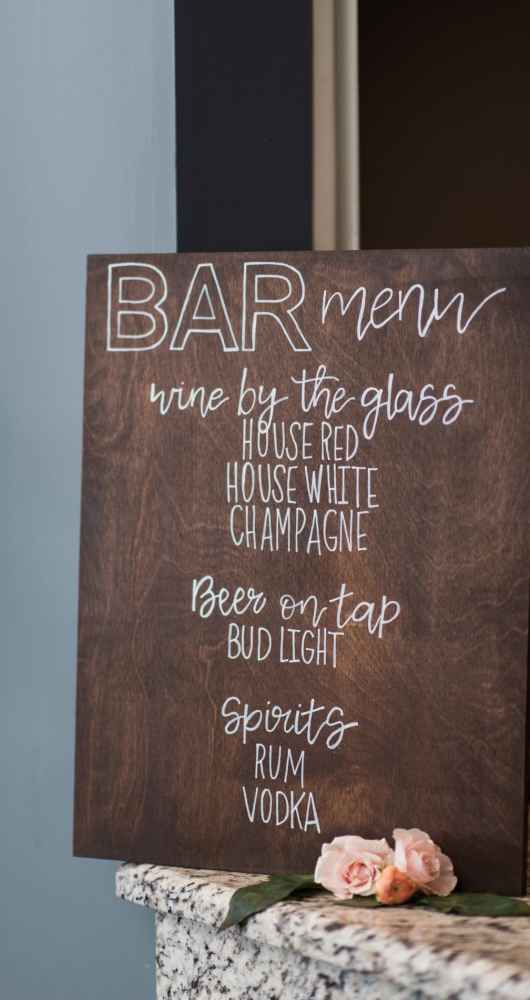 BAR menu
wine by the glass
HOUSE RED
HOUSE WHITE
CHAMPAGNE
Beer on tap
BUD LIGHT
Spirits
RUM
VODKA